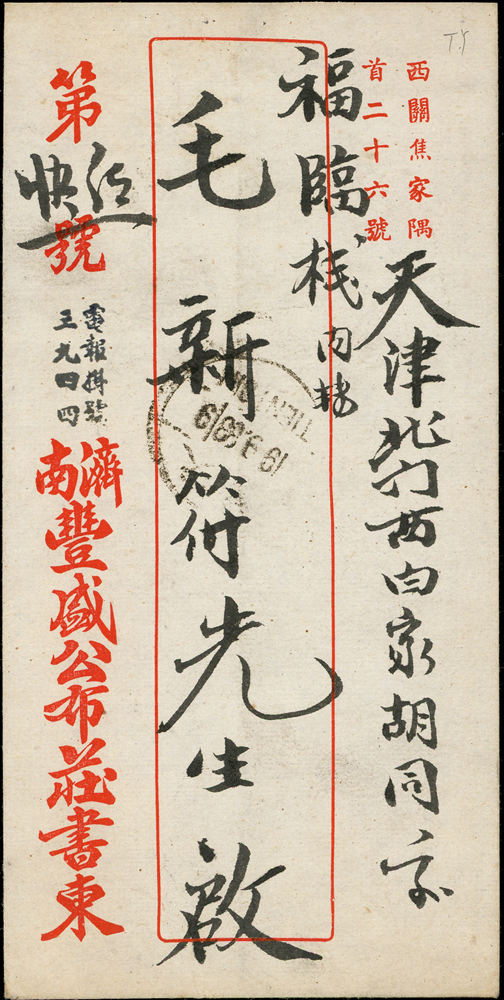 西關焦家隅
首二十六號
天津北門西白家胡同交
福臨棧內
毛新符先生啟
第
快信
號
電報掛號
三九四四
濟南豐盛公布莊書柬
T.Y
TIENTSIN
19 9 39/9